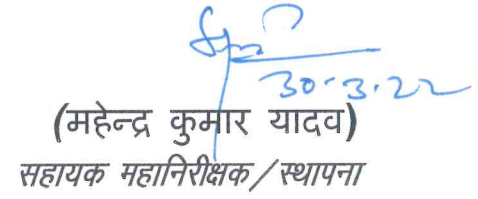 30.3.22
(महेन्द्र कुमार यादव)
सहायक महानिरीक्षक/स्थापना